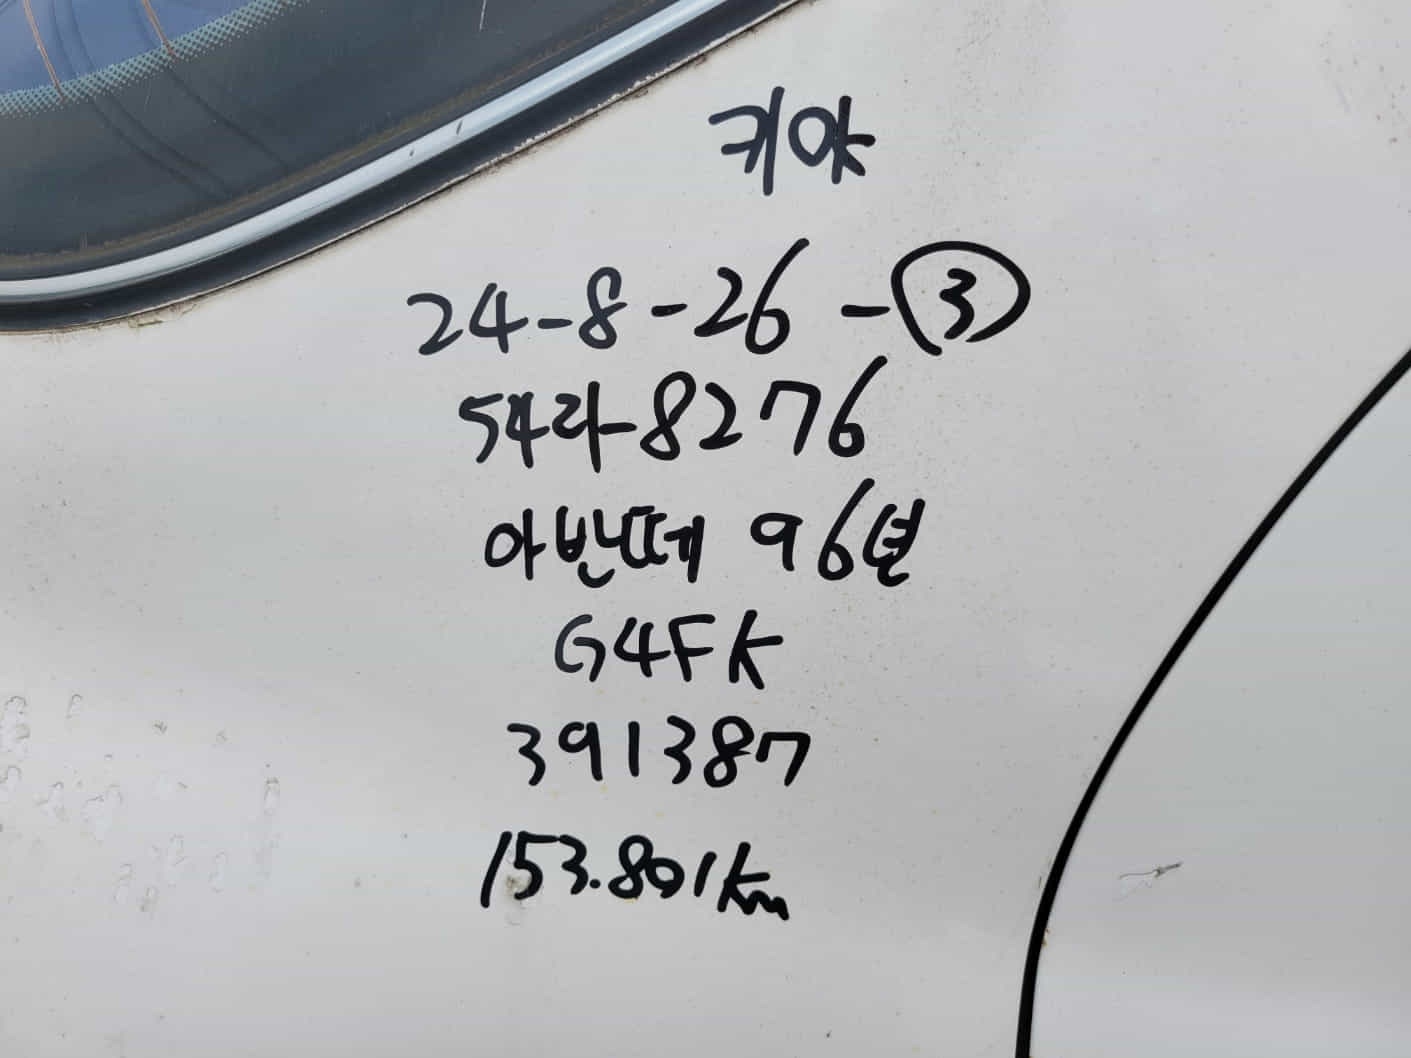 키야
24-8-26-③
54라-8276
아반떼 96년
G4FK
391387
153.801km